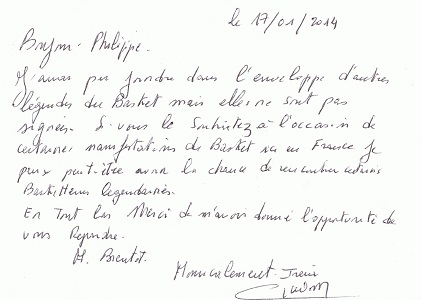 le 17/01/2014
Bonjour Philippe.
J'aurai pu joindre dans l'enveloppe d'autres
légendes du Basket mais elles ne sont pas
signées. Si vous le souhaitez à l'occasion de
certaines manifestations de Basket en France je
peux peut-être avoir la chance de rencontrer certains
Basketteurs légendaires.
En tout cas Merci de m'avoir donné l'opportunité de
vous Répondre.
A Bientôt.
Amicalement